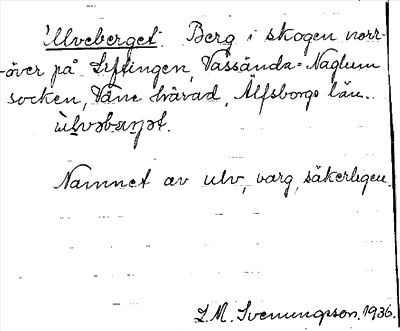 'Ulveberget. Berg i skogen norr-
över på Siftingen, Vassända-Naglum
socken, Väne härad, Älfsborgs län.

Namnet av ulv, varg, säkerligen.
L.M. Svenungsson. 1936.